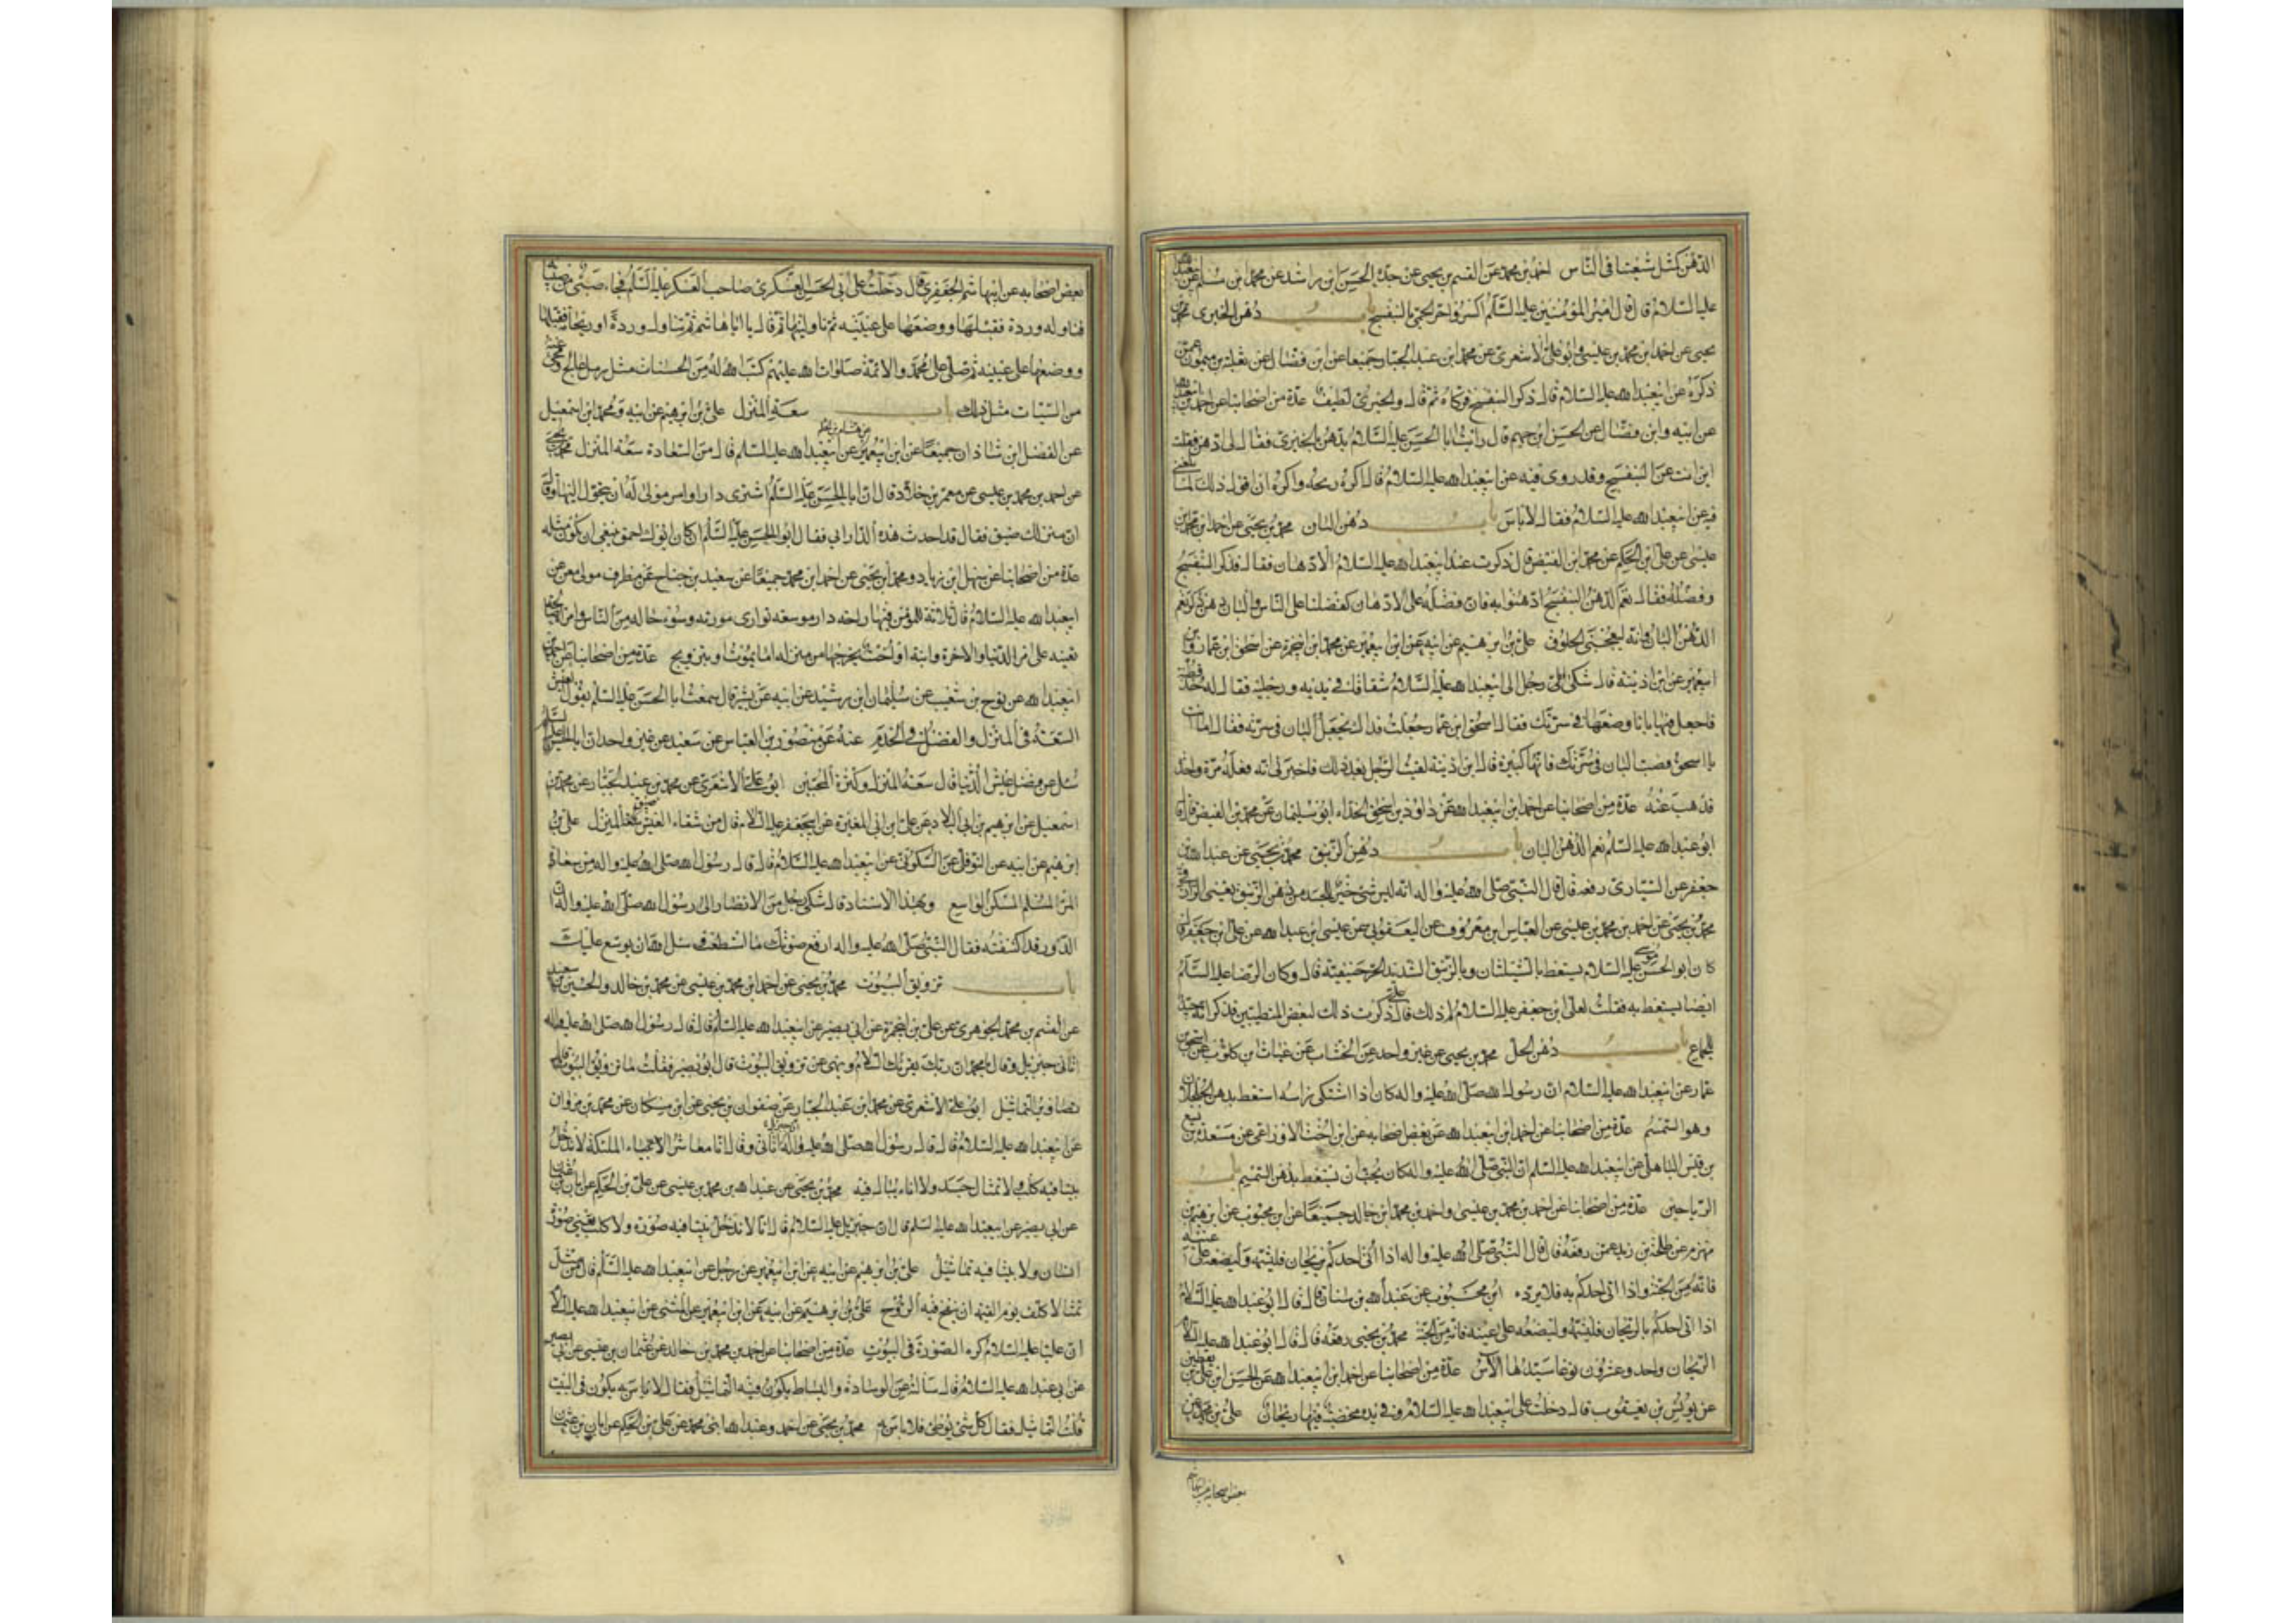 الدهن كمثل شيعتنا في الناس احمد بن محمد عن القسم بن يحيى عن جده الحسن ابن راشد عن محمد ابن مسلم عن
عليه السلام قال قال امير المؤمنين عليه السلام اكسروا حر الحمى بالبنفسج باب دهن الخيري محمد بن
يحيى عن احمد ابن محمد بن عيسى وابو علي الاشعري عن محمد ابن عبد الجبار جميعا عن ابن فضال عن ثعلبة بن ميمون عمن
ذكره عن ابيعبد الله عليه السلام قال ذكر البنفسج فزكاه ثم قال والخيري لطيف عدة من اصحابنا عن احمد
عن ابيه وابن فضال عن الحسن ابن جهم قال رايت ابا الحسن عليه السلام يدهن بالخيري فقال لي ادهن فقلت
اين انت عن البنفسج وقد روي فيه عن ابيعبد الله عليه السلام قال اكره ريحه واكره ان اقول ذلك لما بلغني
فيه عن ابيعبد الله عليه السلام فقال لا باس باب دهن البان محمد بن يحيى عن احمد ابن محمد بن
عيسى عن علي ابن الحكم عن محمد ابن الفيض قال ذكرت عند ابيعبد الله عليه السلام الادهان فقال فذكر البنفسج
وفضله فقال نعم الدهن البنفسج ادهنوا به فان فضله على الادهان كفضلنا على الناس والبان دهن ذكر نعم
الدهن البان وانه ليعجبني الخلوق علي بن ابرهيم عن ابيه عن ابن ابيعمير عن محمد ابن ابيحمزة عن اسحق ابن عمار وابن
ابيعمير عن ابن اذينة قال شكى رجل الى ابيعبد الله عليه السلام شقاقا في يديه ورجليه فقال له خذ قطنة
فاجعل فيها بانا وضعها في سرتك فقال اسحق ابن عمار جعلت فداك يجعل البان في سرته فقال اما انت
يا اسحق فصب البان في سرتك فانها كبيرة قال ابن اذينة لقيت الرجل بعد ذلك فاخبرني انه فعله مرة واحدة
فذهب عنه عدة من اصحابنا عن احمد ابن ابيعبد الله عن داود بن اسحق الحذاء ابو سليمان عن محمد بن الفيض قال قال
ابو عبد الله عليه السلم نعم الدهن البان باب دهن الزنبق محمد بن يحيى عن عبد الله بن
جعفر عن السياري رفعه قال قال النبي صلى الله عليه واله انه ليس شيء خير للجسد من دهن الزنبق يعني الرازقي
محمد بن يحيى عن احمد بن محمد بن عيسى عن العباس ابن معروف عن اليعقوبي عن عيسى ابن عبد الله عن علي ابن جعفر قال
كان ابو الحسن موسى عليه السلام يستعط بالشيلثان وبالزنبق الشديد الحر خسفته قال وكان الرضا عليه السلام
ايضا يستعط به فقلت لعلي ابن جعفر عليه السلام لم ذلك قال علي ذكرت ذلك لبعض المتطببين فذكر انه جيد
للجماع باب دهن الحل محمد بن يحيى عن غير واحد عن الخشاب عن غياث ابن كلوب عن اسحق بن
عمار عن ابيعبد الله عليه السلام ان رسول الله صلى الله عليه واله كان اذا اشتكى راسه استعط بدهن الجلجلان
وهو السمسم عدة من اصحابنا عن احمد ابن ابيعبد الله عن بعض اصحابه عن ابن اخت الاوزاعي عن مسعدة بن اليسع
بن قيس الباهلي عن ابيعبد الله عليه السلم ان النبي صلى الله عليه واله كان يحب ان يستعط بدهن السمسم باب
الرياحين عدة من اصحابنا عن احمد بن محمد بن عيسى واحمد بن محمد ابن خالد جميعا عن ابن محبوب عن ابرهيم بن
مهزم عن طلحة بن زيد عمن رفعه قال قال النبي صلى الله عليه واله اذا اتي احدكم بريحان فليشمه وليضعه على عينيه
فانه من الجنة واذا اتي احدكم به فلا يرده ابن محبوب عن عبد الله بن سنان قال قال ابو عبد الله عليه السلام
اذا اتي احدكم بالريحان فليشمه وليضعه على عينيه فانه من الجنة محمد بن يحيى رفعه قال قال ابو عبد الله عليه السلام
الريحان واحد وعشرون نوعا سيدها الآس عدة من اصحابنا عن احمد ابن ابيعبد الله عن الحسن ابن علي بن يقطين
عن يونس بن يعقوب قال دخلت على ابيعبد الله عليه السلام وفي يده مخضبة فيها ريحان علي بن محمد عن
بعض اصحابه عن ابيهاشم
بعض اصحابه عن ابيهاشم الجعفري قال دخلت على ابي الحسن العسكري صاحب العسكر عليه السلم فجاء صبي من صبيانه
فناوله وردة فقبلها ووضعها على عينيه ثم ناولنيها ثم قال يا ابا هاشم من تناول وردة او ريحانة فقبلها
ووضعها على عينيه ثم صلى على محمد والائمة صلوات الله عليهم كتب الله له من الحسنات مثل رمل عالج ومحى عنه
من السيئات مثل ذلك باب سعة المنزل علي بن ابرهيم عن ابيه ومحمد ابن اسمعيل
عن الفضل ابن شاذان جميعا عن ابن ابيعمير عن هشام بن الحكم عن ابيعبد الله عليه السلم قال من السعادة سعة المنزل محمد بن يحيى
عن احمد بن محمد بن عيسى عن معمر بن خلاد قال ان ابا الحسن عليه السلم اشترى دارا وامر مولى له ان يتحول اليها وقال
ان منزلك ضيق فقال قد احدث هذه الدار ابي فقال ابو الحسن عليه السلم ان كان ابوك احمق ينبغي ان تكون مثله
عدة من اصحابنا عن سهل ابن زياد ومحمد ابن يحيى عن احمد ابن محمد جميعا عن سعيد بن جناح عن مطرف مولى معن عن
ابيعبد الله عليه السلام قال ثلاثة للمؤمن فيها راحة دار موسعة تواري عورته وسوء حاله من الناس وامراة صالحة
تعينه على امر الدنيا والاخرة وابنة او اخت يخرجها من منزله اما بموت او بتزويج عدة من اصحابنا عن احمد بن
ابيعبد الله عن نوح بن شعيب عن سليمان ابن رشيد عن ابيه عن بشير قال سمعت ابا الحسن عليه السلم يقول العيش
السعة في المنزل والفضل في الخدم عنه عن منصور بن العباس عن سعيد عن غير واحد ان ابا الحسن عليه السلم
سئل عن فضل عيش الدنيا قال سعة المنزل وكثرة المحبين ابو علي الاشعري عن محمد بن عبد الجبار عن محمد بن
اسمعيل عن ابرهيم بن ابي البلاد عن علي ابن ابي المغيرة عن ابيجعفر عليه السلام قال من شقاء العيش ضيق المنزل علي بن
ابرهيم عن ابيه عن النوفلي عن السكوني عن ابيعبد الله عليه السلام قال قال رسول الله صلى الله عليه واله من سعادة
المرء المسلم المسكن الواسع وبهذا الاسناد قال شكى رجل من الانصار الى رسول الله صلى الله عليه واله ان
الدور قد اكتنفته فقال النبي صلى الله عليه واله ارفع صوتك ما استطعت وسل الله ان يوسع عليك
باب تزويق البيوت محمد بن يحيى عن احمد ابن محمد بن عيسى عن محمد بن خالد والحسين بن سعيد
عن القسم بن محمد الجوهري عن علي بن ابيحمزة عن ابي بصير عن ابيعبد الله عليه السلم قال قال رسول الله صلى الله عليه واله
اتاني جبرئيل وقال يا محمد ان ربك يقرئك السلام وينهى عن تزويق البيوت قال ابو بصير فقلت ما تزويق البيوت قال
تصاوير التماثيل ابو علي الاشعري عن محمد ابن عبد الجبار عن صفوان بن يحيى عن ابن مسكان عن محمد بن مروان
عن ابيعبد الله عليه السلام قال قال رسول الله صلى الله عليه واله ان جبرئيل اتاني وقال انا معاشر الملئكة لا ندخل
بيتا فيه كلب ولا تمثال جسد ولا اناء يبال فيه محمد بن يحيى عن عبد الله بن محمد بن عيسى عن علي بن الحكم عن ابان بن عثمان
عن ابي بصير عن ابيعبد الله عليه السلم قال ان جبرئيل عليه السلام قال انا لا ندخل بيتا فيه صورة ولا كلب يعني صورة
انسان ولا بيتا فيه تماثيل علي بن ابرهيم عن ابيه عن ابن ابيعمير عن رجل عن ابيعبد الله عليه السلم قال من مثل
تمثالا كلف يوم القيمة ان ينفخ فيه الروح علي بن ابرهيم عن ابيه عن ابن ابيعمير عن المثنى عن ابيعبد الله عليه السلام
ان عليا عليه السلام كره الصورة في البيوت عدة من اصحابنا عن احمد بن محمد بن خالد عن عثمان بن عيسى عن ابي بصير
عن ابي عبد الله عليه السلام قال سالته عن الوسادة والبساط يكون فيه التماثيل فقال لا باس به يكون في البيت
قلت التماثيل فقال كل شيء يوطئ فلا باس به محمد بن يحيى عن احمد وعبد الله ابني محمد عن علي بن الحكم عن ابان بن عثمان